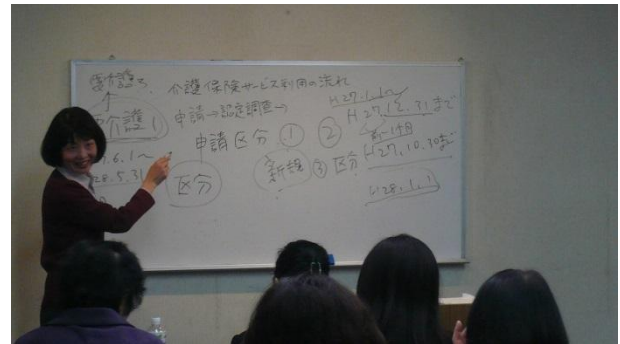 要介護3 介護保険サービス利用の流れ
介護1
申請→認定調査→
H27.1.1〜
H27.12.31まで
申請区分 ① ②
.6.1〜
28.5.31
区分
新規 ③ 区分
H27.10.30まで
H28.1.1